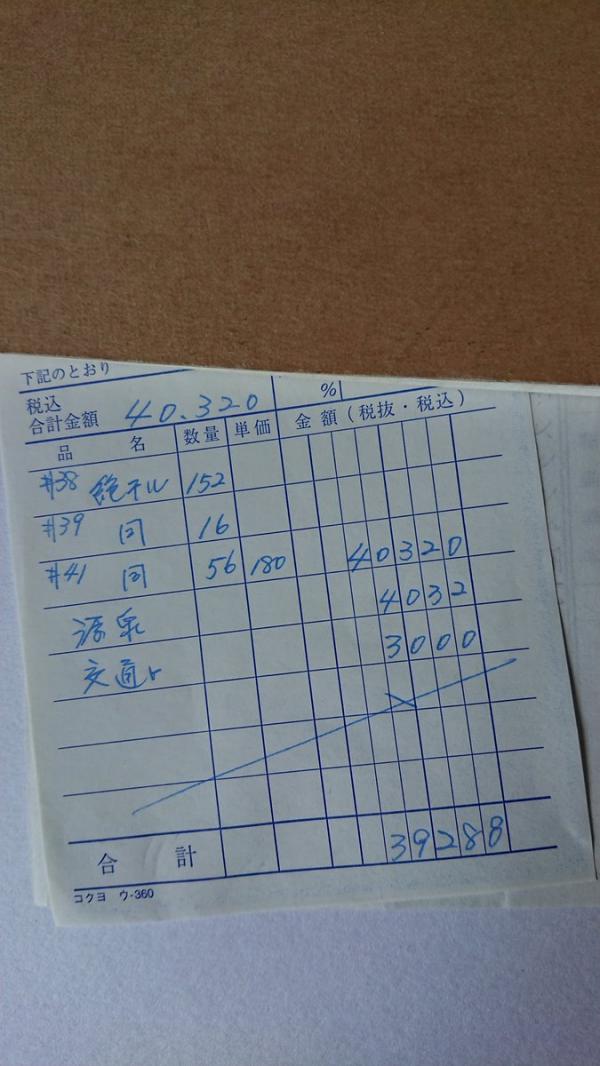 下記のとおり
税込
合計金額 40.320 %
品名 数量 単価 金額(税抜・税込)
#38 152
#39 同 16
#41 同 56 180 40320
源泉 4032
3000
合計 39288
コクヨ ウ-360